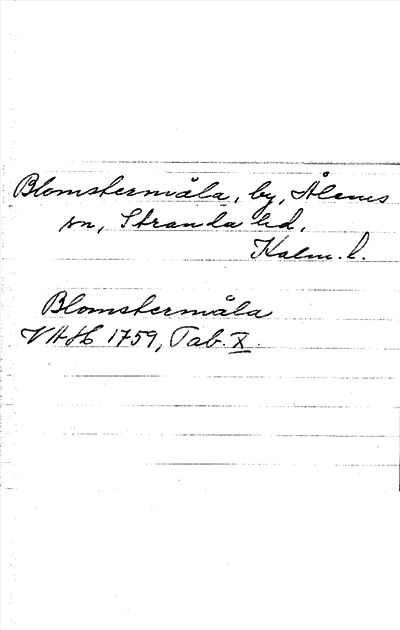 Blomstermåla, by, Ålems
sn, Stranda hd,
Kalm. l.
Blomstermåla
VAH 1759, Tab. X.